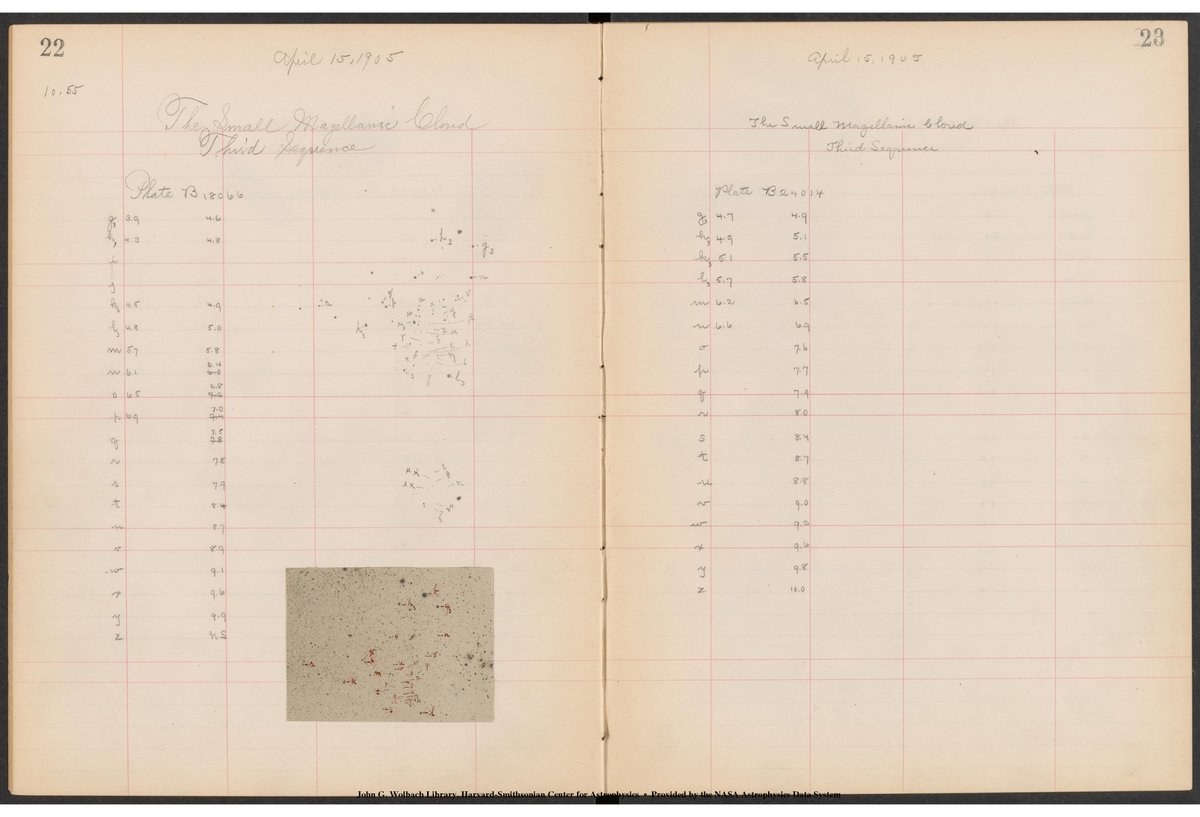 22
April 15, 1905
10.55
The Small Magellanic Cloud
Third Sequence
Plate B 18066
g3 3.9 4.6
h3 4.3 4.8
i
j
k3 4.5 4.9
l3 4.8 5.0
m 5.7 5.8
6.4
n 6.1 6.3
6.8
o 6.5 7.2
7.3
p 6.9 7.4
7.5
q 7.8
r 7.8
s 7.9
t 8.4
u 8.7
v 8.9
w 9.1
x 9.6
y 9.9
z n.s
h3
g3
n
r
k3
l3
23
April 15, 1905
The Small Magellanic Cloud
Third Sequence
Plate B 24014
g3 4.7 4.9
h3 4.9 5.1
k3 5.1 5.5
l3 5.7 5.8
m 6.2 6.5
n 6.6 6.9
o 7.6
p 7.7
q 7.9
r 8.0
s 8.4
t 8.7
u 8.8
v 9.0
w 9.2
x 9.6
y 9.8
z 10.0
John G. Wolbach Library, Harvard-Smithsonian Center for Astrophysics • Provided by the NASA Astrophysics Data System